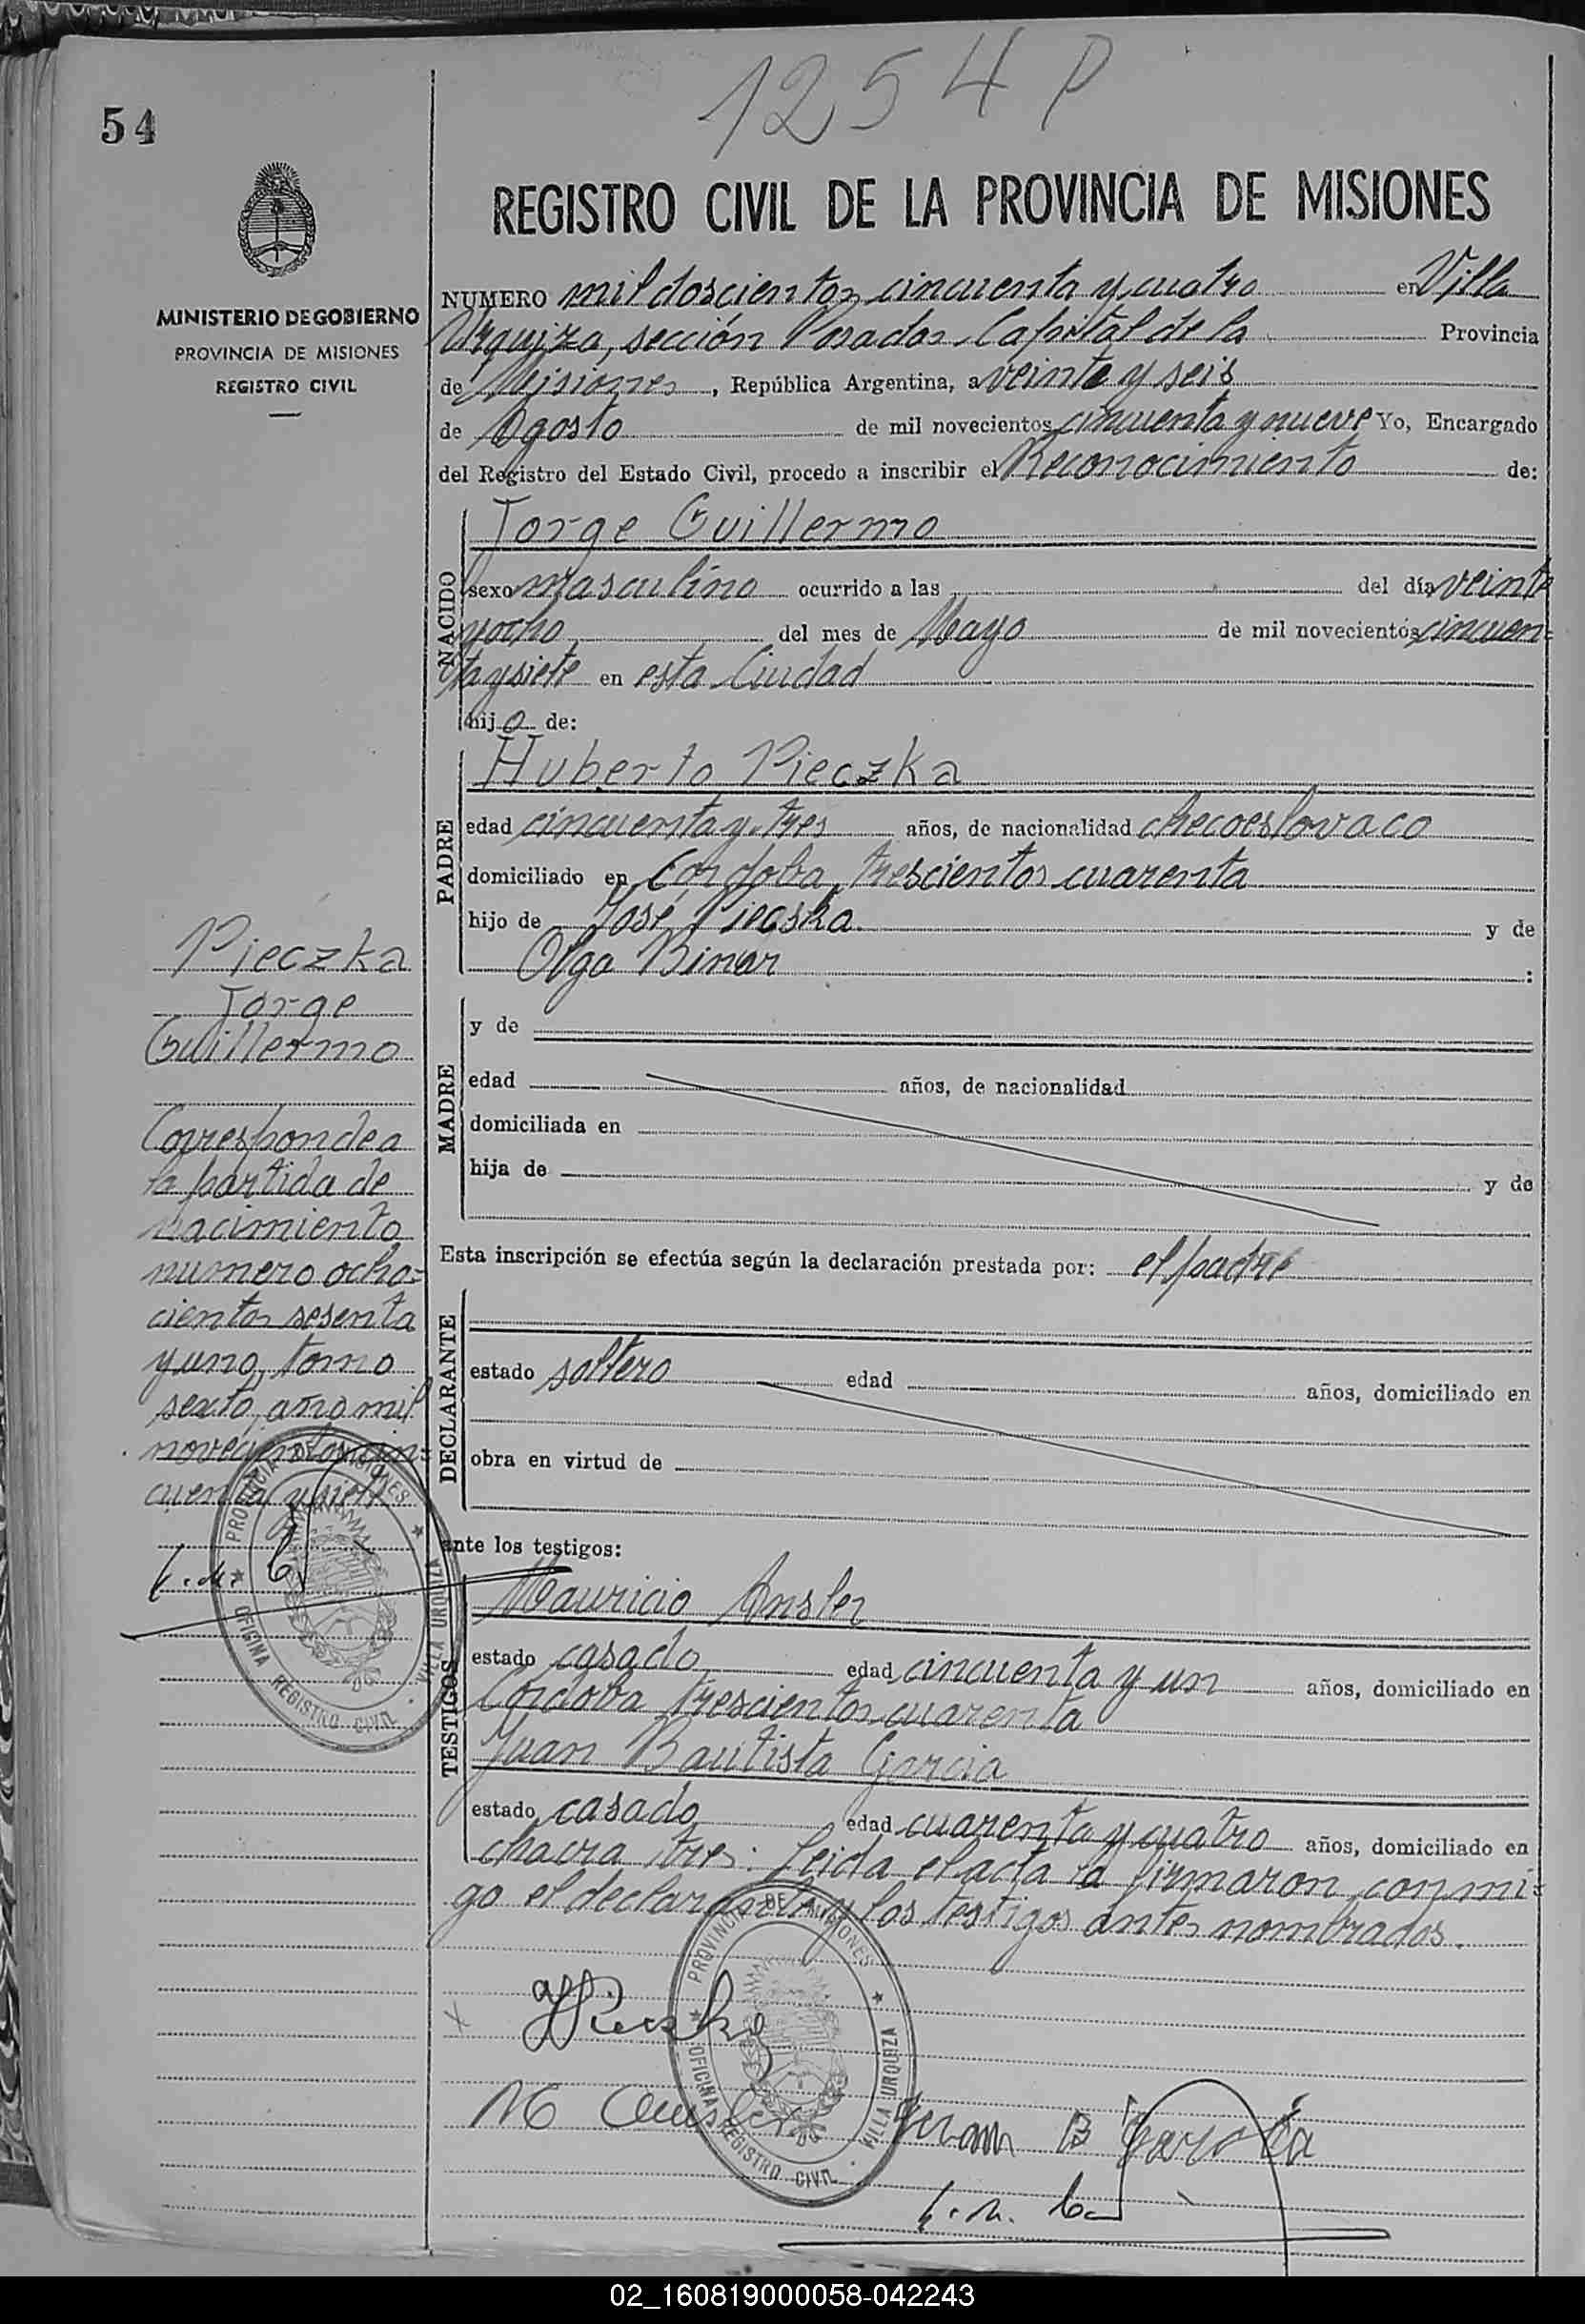 1254 P
54
REGISTRO CIVIL DE LA PROVINCIA DE MISIONES
MINISTERIO DE GOBIERNO
PROVINCIA DE MISIONES
REGISTRO CIVIL
NUMERO mil doscientos cincuenta y cuatro en Villa
Urquiza, sección Posadas Capital de la Provincia
de Misiones, República Argentina, a veinte y seis
de Agosto de mil novecientos cincuenta y nueve Yo, Encargado
del Registro del Estado Civil, procedo a inscribir el Reconocimiento de:
NACIDO
Jorge Guillermo
sexo masculino ocurrido a las del día veinte
y ocho del mes de Mayo de mil novecientos cincuen=
ta y siete en esta Ciudad
hijo de:
PADRE
Huberto Pieczka
edad cincuenta y tres años, de nacionalidad checoeslovaco
domiciliado en Córdoba, trescientos cuarenta
hijo de José Piecska y de
Olga Binar :
MADRE
y de
edad años, de nacionalidad
domiciliada en
hija de y de
Esta inscripción se efectúa según la declaración prestada por: el padre
DECLARANTE
estado soltero edad años, domiciliado en
obra en virtud de
ante los testigos:
TESTIGOS
Mauricio Ansler
estado casado edad cincuenta y un años, domiciliado en
Córdoba trescientos cuarenta
Juan Bautista Garcia
estado casado edad cuarenta y cuatro años, domiciliado en
chacra tres. Leida el acta la firmaron conmi=
go el declarante y los testigos antes nombrados.
Pieczka
Jorge
Guillermo
Corresponde a
la partida de
nacimiento
numero ocho=
cientos sesenta
y uno, tomo
sexto, año mil
novecientos cin=
cuenta y siete
PROVINCIA DE MISIONES
OFICINA REGISTRO CIVIL
VILLA URQUIZA
H Pieczka
M Ansler
Juan B Garcia
PROVINCIA DE MISIONES
OFICINA REGISTRO CIVIL
VILLA URQUIZA
02_160819000058-042243